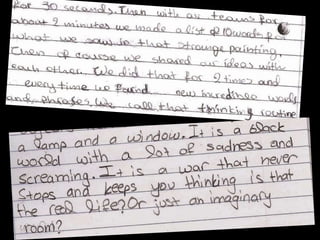 for 30 seconds. Then with our teams for
about 2 minutes we made a list of 10 words for
what we saw in that strange painting.
Then of course we shared our ideas with
each other. We did that for 2 times and
every time we found new incredible words
and phrases. We call that thinking routine
a lamp and a window. It is a black
world with a lot of sadness and
screaming. It is a war that never
stops and keeps you thinking is that
the real life? Or just an imaginary
room?